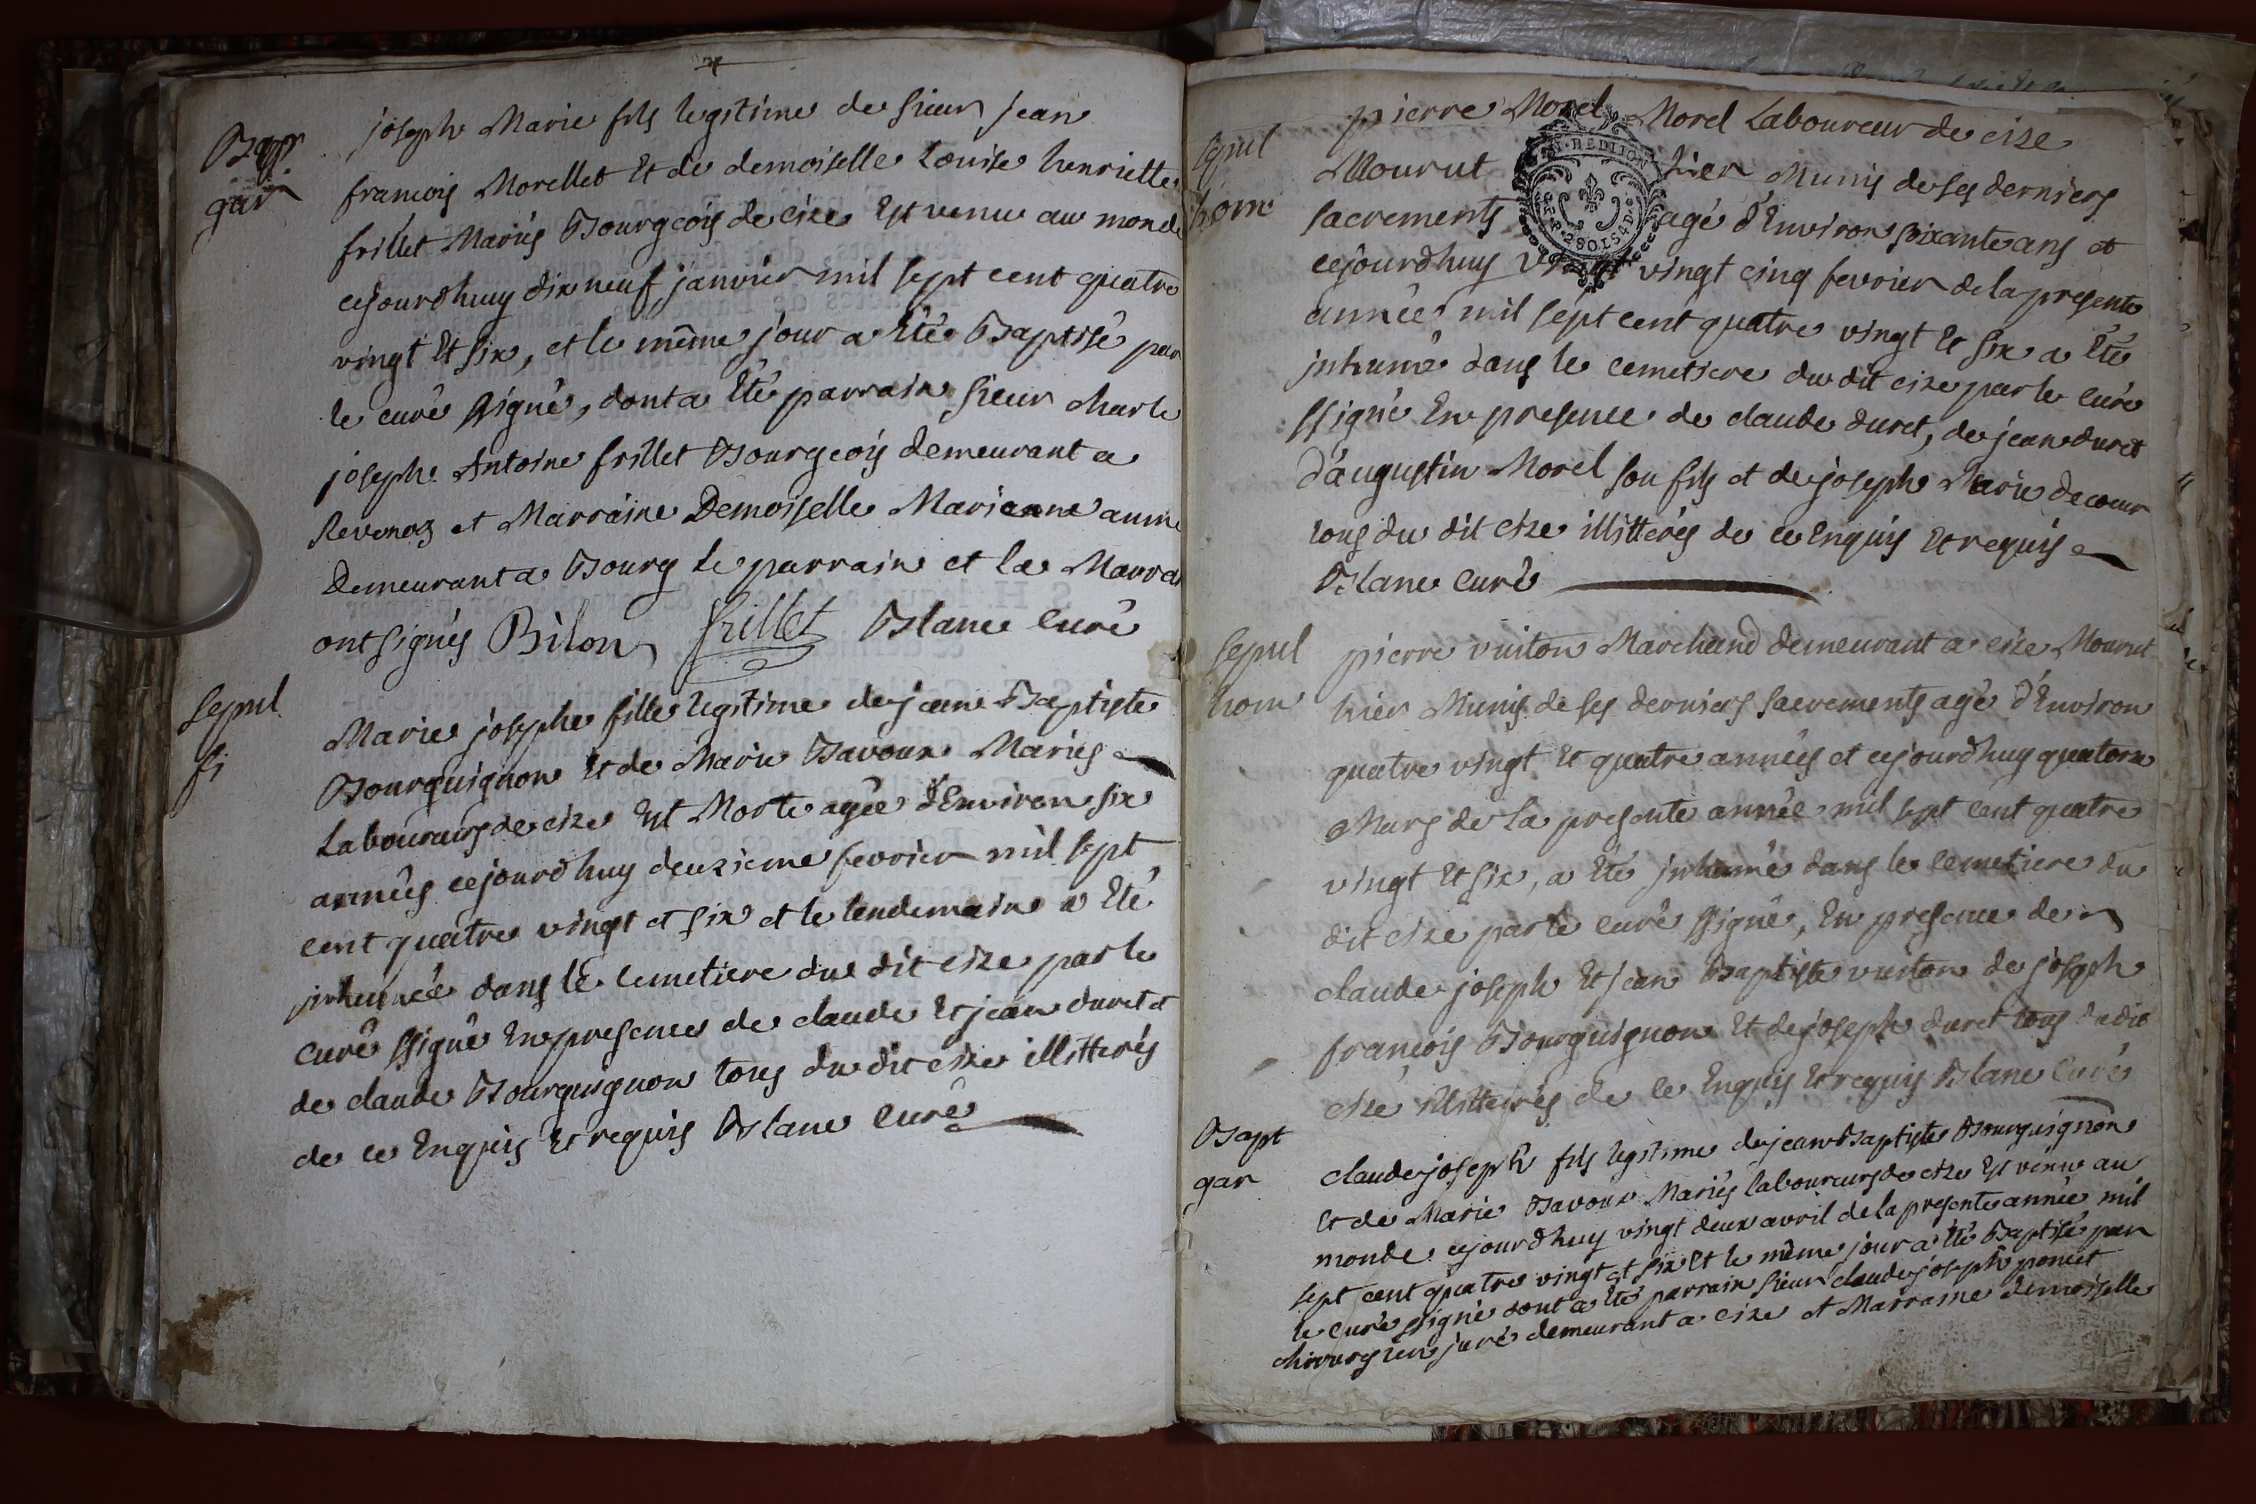 Bapt
gar
joseph Marie fils legitime de sieur jean
francois Morellet Et de demoiselle Louise henriette
frillet Mariés Bourgeois de cize Est venu au monde
cejourdhuy dix neuf janvier mil sept cent quatre
vingt Et six, et le même jour a Eté Baptisé par
le curé ssigné, dont a Eté parrain sieur charle
joseph Antoine frillet Bourgeois demeurant a
Revonas et Marraine Demoiselle Marianne
Demeurant a Bourg le parrain et la Marra
ont signés Bilon frillet Blanc Curé
sepul
fi
Marie josephe fille legitime de jean Baptiste
Bourguignon Et de Marie Bavoux Mariés
Laboureurs de cize Est Morte agée d'Environ six
années cejourdhuy deuxieme fevrier mil sept
cent quatre vingt et six et le lendemain a Eté
inhumée dans le cemetiere du dit cize par le
curé ssigné En presence de claude Et jean duret et
de claude Bourguignon tous du dit cize illitterés
de ce Enquis Et requis Blanc Curé
sepul
hom
pierre Morel Morel Laboureur de cize
Mourut hier Munis de ses derniers
sacrements agé d'Environ soixante ans et
cejourdhuy vingt cinq fevrier de la presente
année mil sept cent quatre vingt Et six a Eté
inhumé dans le cemetiere du dit cize par le Curé
ssigné En presence de claude duret, de jean duret
d'augustin Morel son fils et de joseph Marie decoeur
tous du dit cize illitterés de ce Enquis Et requis
Blanc Curé
sepul
hom
pierre vuiton Marchand demeurant a cize Mourut
hier Munis de ses derniers sacrements agé d'Environ
quatre vingt Et quatre années et cejourdhuy quatorze
Mars de la presente année mil sept cent quatre
vingt Et six, a Eté inhumé dans le cemetiere du
dit cize par le curé ssigné, En presence de
claude joseph Et jean Baptiste vuiton de joseph
françois Bourguignon Et de joseph duret tous du dit
cize illitterés de ce Enquis Et requis Blanc Curé
Bapt
gar
claude joseph fils legitime de jean Baptiste Bourguignon
Et de Marie Bavoux Mariés laboureurs de cize Est venu au
monde cejourdhuy vingt deux avril de la presente année mil
sept cent quatre vingt et six Et le même jour a Eté Baptisé par
le curé ssigné dont a Eté parrain sieur claude joseph poncet
chirurgien juré demeurant a cize et Marraine demoiselle